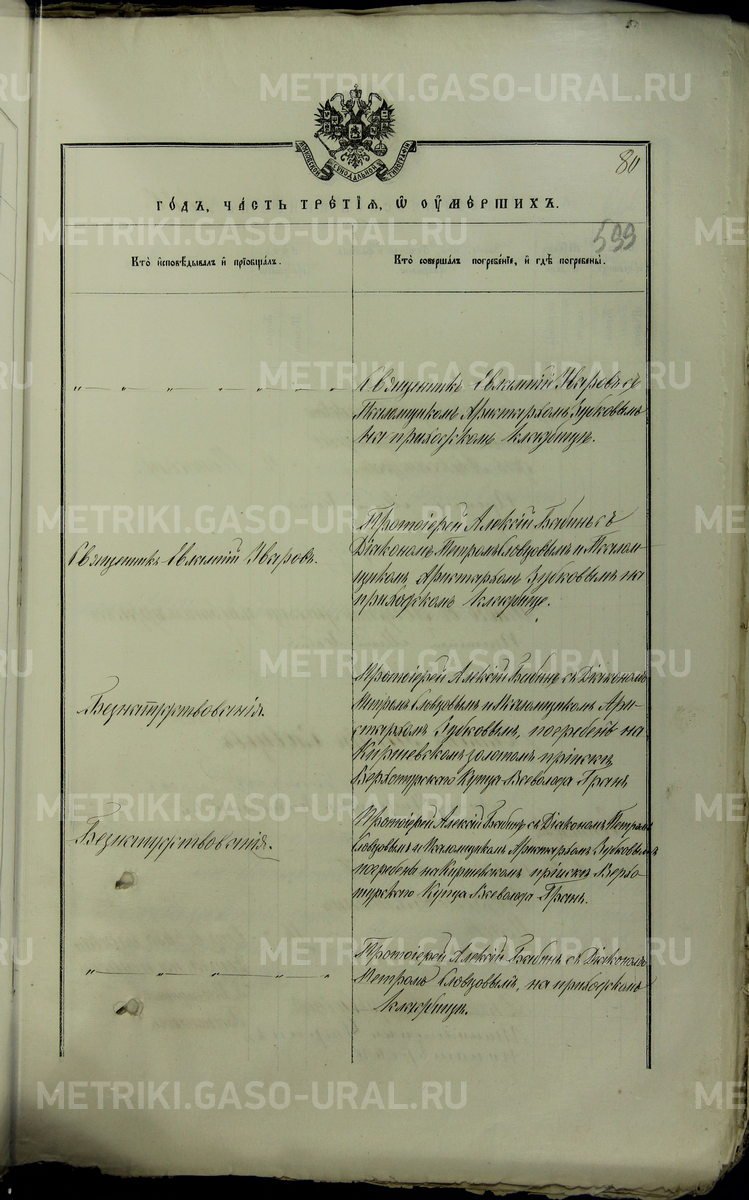 METRIKI.GASO-URAL.RU
80
МОСКОВСКОЙ СѴНОДАЛЬНОЙ ТИПОГРАФІИ
ГОДЪ, ЧАСТЬ ТРЕТІЯ, Ѿ ОУМЕРШИХЪ.
599
Кто исповѣдывалъ и пріобщалъ.
Кто совершалъ погребеніе, и гдѣ погребены.
Священникъ Евлампій Уваровъ съ
Псаломщикомъ Аристархомъ Зубковымъ
на приходскомъ кладбищѣ.
Священникъ Евлампій Уваровъ.
Протоіерей Алексій Бабинъ съ
Діакономъ Петромъ Словцовымъ и Псалом-
щикомъ Аристархомъ Зубковымъ на
приходскомъ кладбищѣ.
Безнапутствованія.
Протоіерей Алексій Бабинъ съ Діакономъ
Петромъ Словцовымъ и Псаломщикомъ Ари-
стархомъ Зубковымъ, погребенъ на
золотомъ пріискѣ
Верхотурскаго Купца Всеволода
Безнапутствованія.
Протоіерей Алексій Бабинъ съ Діакономъ Петромъ
Словцовымъ и Псаломщикомъ Аристархомъ Зубковымъ
погребены на пріискѣ Верхо-
турскаго Купца Всеволода
Протоіерей Алексій Бабинъ съ Діакономъ
Петромъ Словцовымъ, на приходскомъ
кладбищѣ.